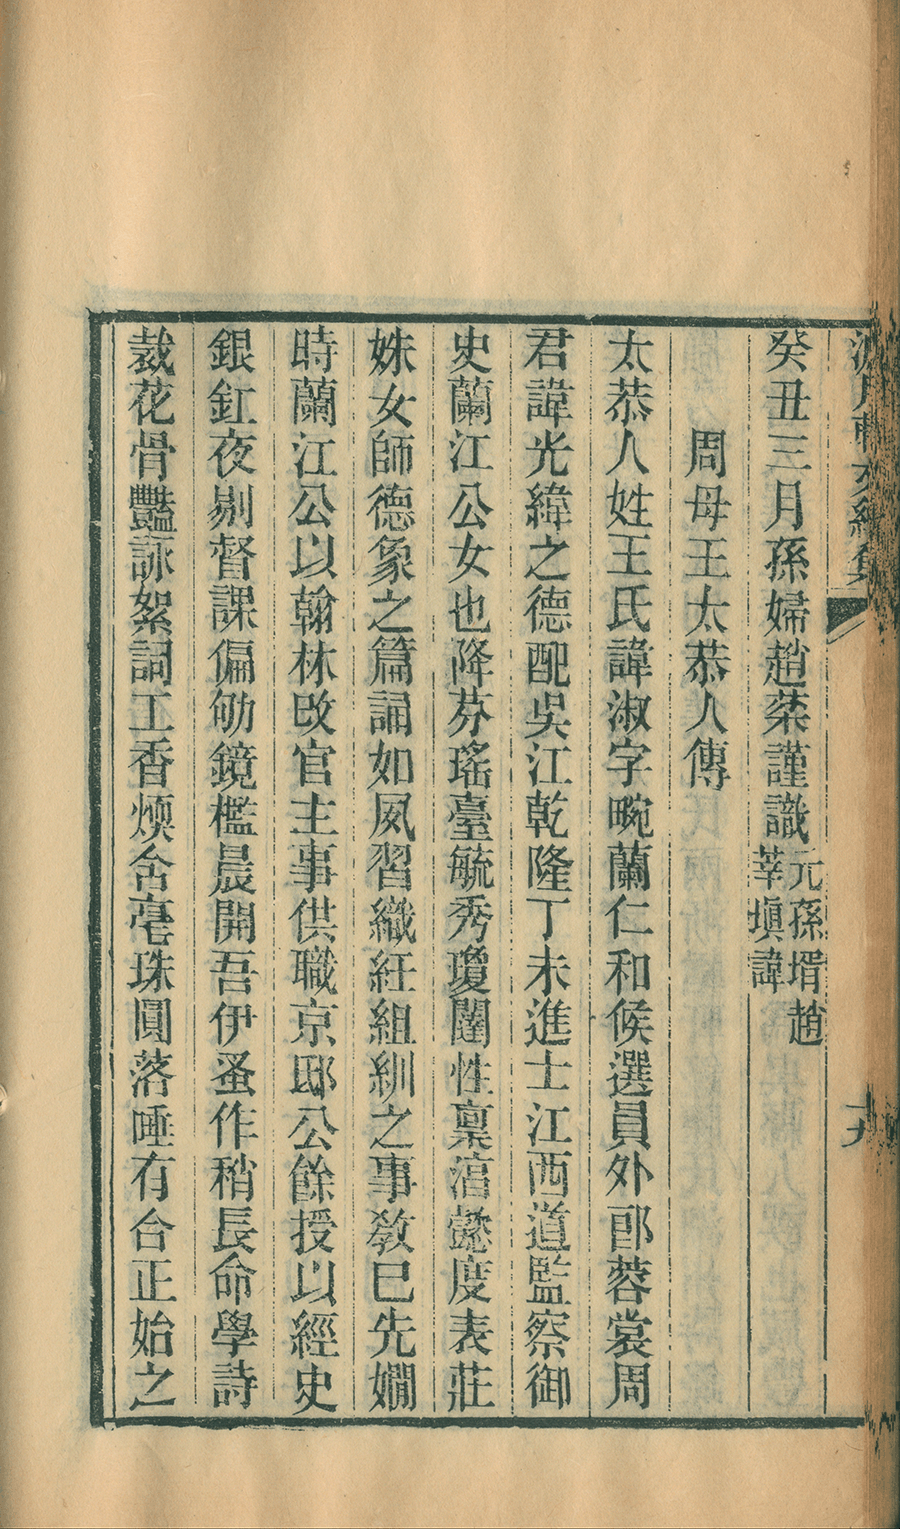 濾月軒文續集
十九
癸丑三月孫婦趙棻謹識
元孫壻趙
莘塡諱
周母王太恭人傳
太恭人姓王氏諱淑字畹蘭仁和候選員外郎蓉裳周
君諱光緯之德配吳江乾隆丁未進士江西道監察御
史蘭江公女也降芬瑤臺毓秀瓊闥性稟湻懿度表莊
姝女師德象之篇誦如夙習織紝組紃之事敎已先嫺
時蘭江公以翰林改官主事供職京邸公餘授以經史
銀釭夜剔督課偏劬鏡檻晨開吾伊蚤作稍長命學詩
裁花骨豔詠絮詞工香煗含毫珠圓落唾有合正始之